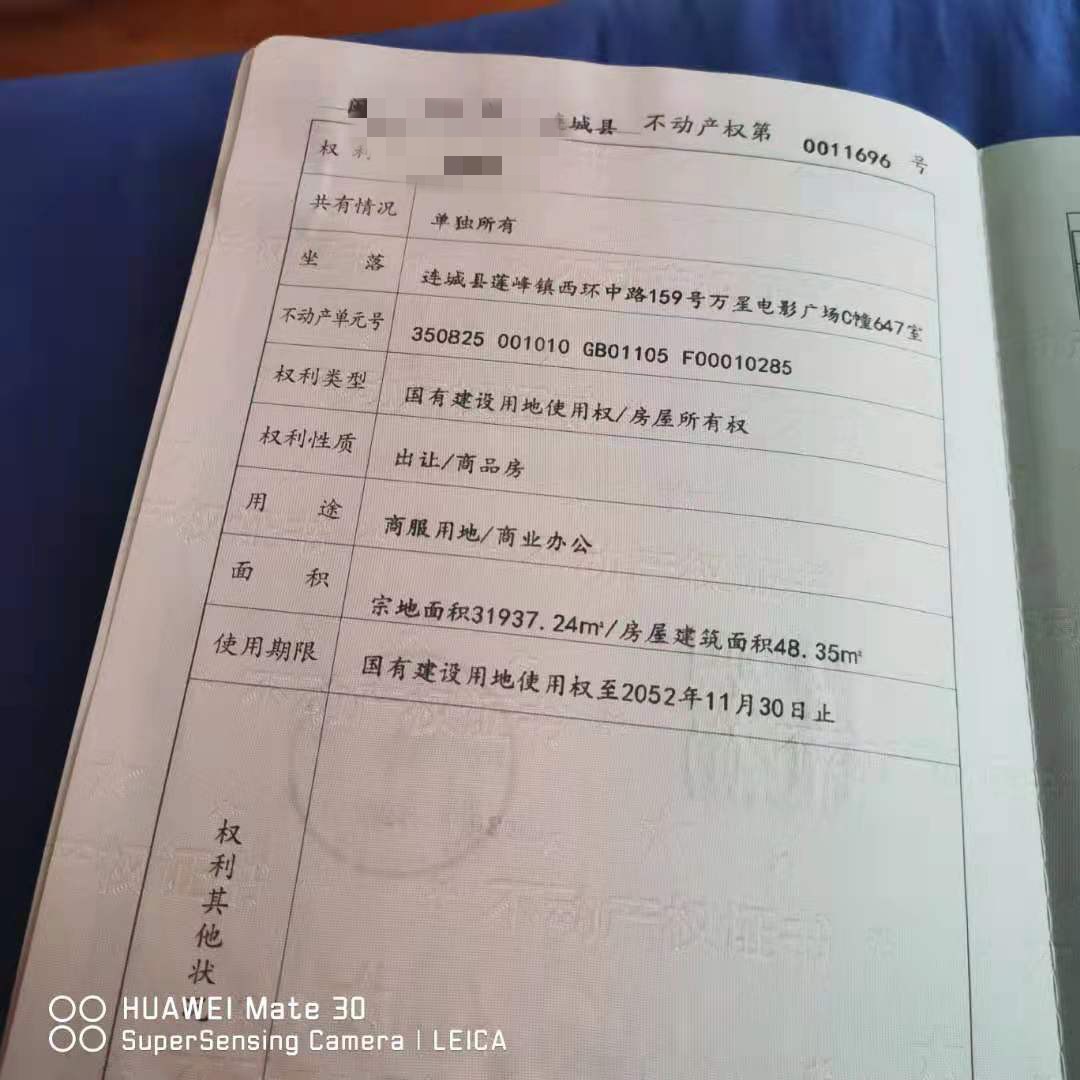 城县 不动产权第 0011696 号
权
共有情况 单独所有
坐 落 连城县莲峰镇西环中路159号万星电影广场C幢647室
不动产单元号 350825 001010 GB01105 F00010285
权利类型 国有建设用地使用权/房屋所有权
权利性质 出让/商品房
用 途 商服用地/商业办公
面 积 宗地面积31937.24㎡/房屋建筑面积48.35㎡
使用期限 国有建设用地使用权至2052年11月30日止
权利其他状
不动产权证书
HUAWEI Mate 30
SuperSensing Camera | LEICA